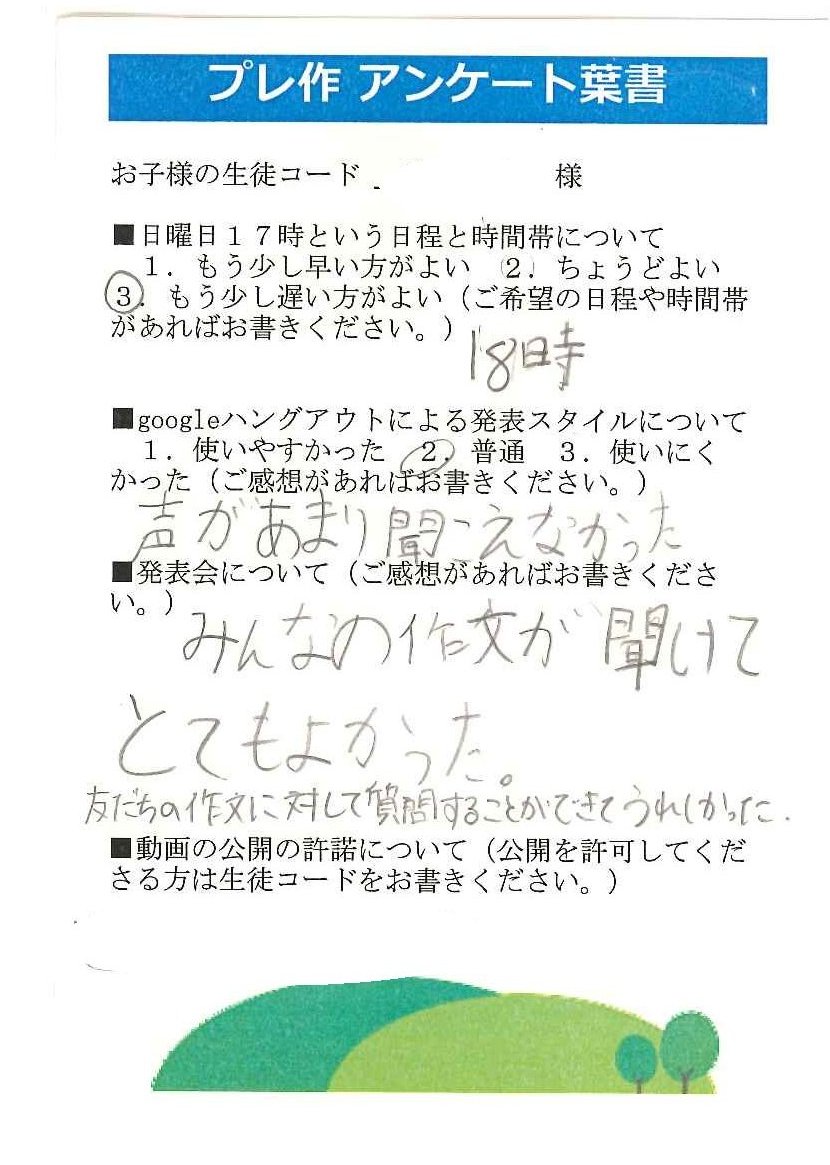 プレ作 アンケート葉書
お子様の生徒コード 様
■日曜日１７時という日程と時間帯について
１．もう少し早い方がよい ２．ちょうどよい
３．もう少し遅い方がよい（ご希望の日程や時間帯
があればお書きください。）
18時
■googleハングアウトによる発表スタイルについて
１．使いやすかった ２．普通 ３．使いにく
かった（ご感想があればお書きください。）
声があまり聞こえなかった
■発表会について（ご感想があればお書きくださ
い。）
みんなの作文が聞けて
とてもよかった。
友だちの作文に対して質問することができてうれしかった.
■動画の公開の許諾について（公開を許可してくだ
さる方は生徒コードをお書きください。）